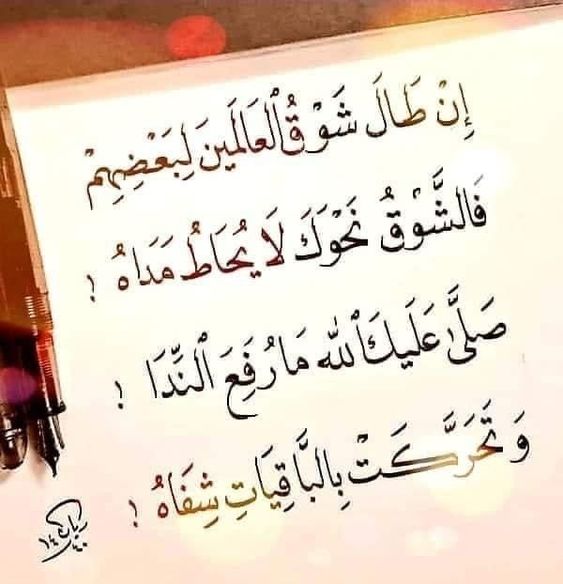 إِنْ طَالَ شَوْقُ ٱلعَالَمِينَ لِبَعْضِهِمْ
فَالشَّوْقُ نَحْوَكَ لَا يُحَاطُ مَدَاهُ !
صَلَّى عَلَيكَ ٱلله مَا رُفِعَ ٱلنِّدَا !
وَ تَحَرَّكَتْ بِالبَّاقِيَاتِ شِفَاهُ !